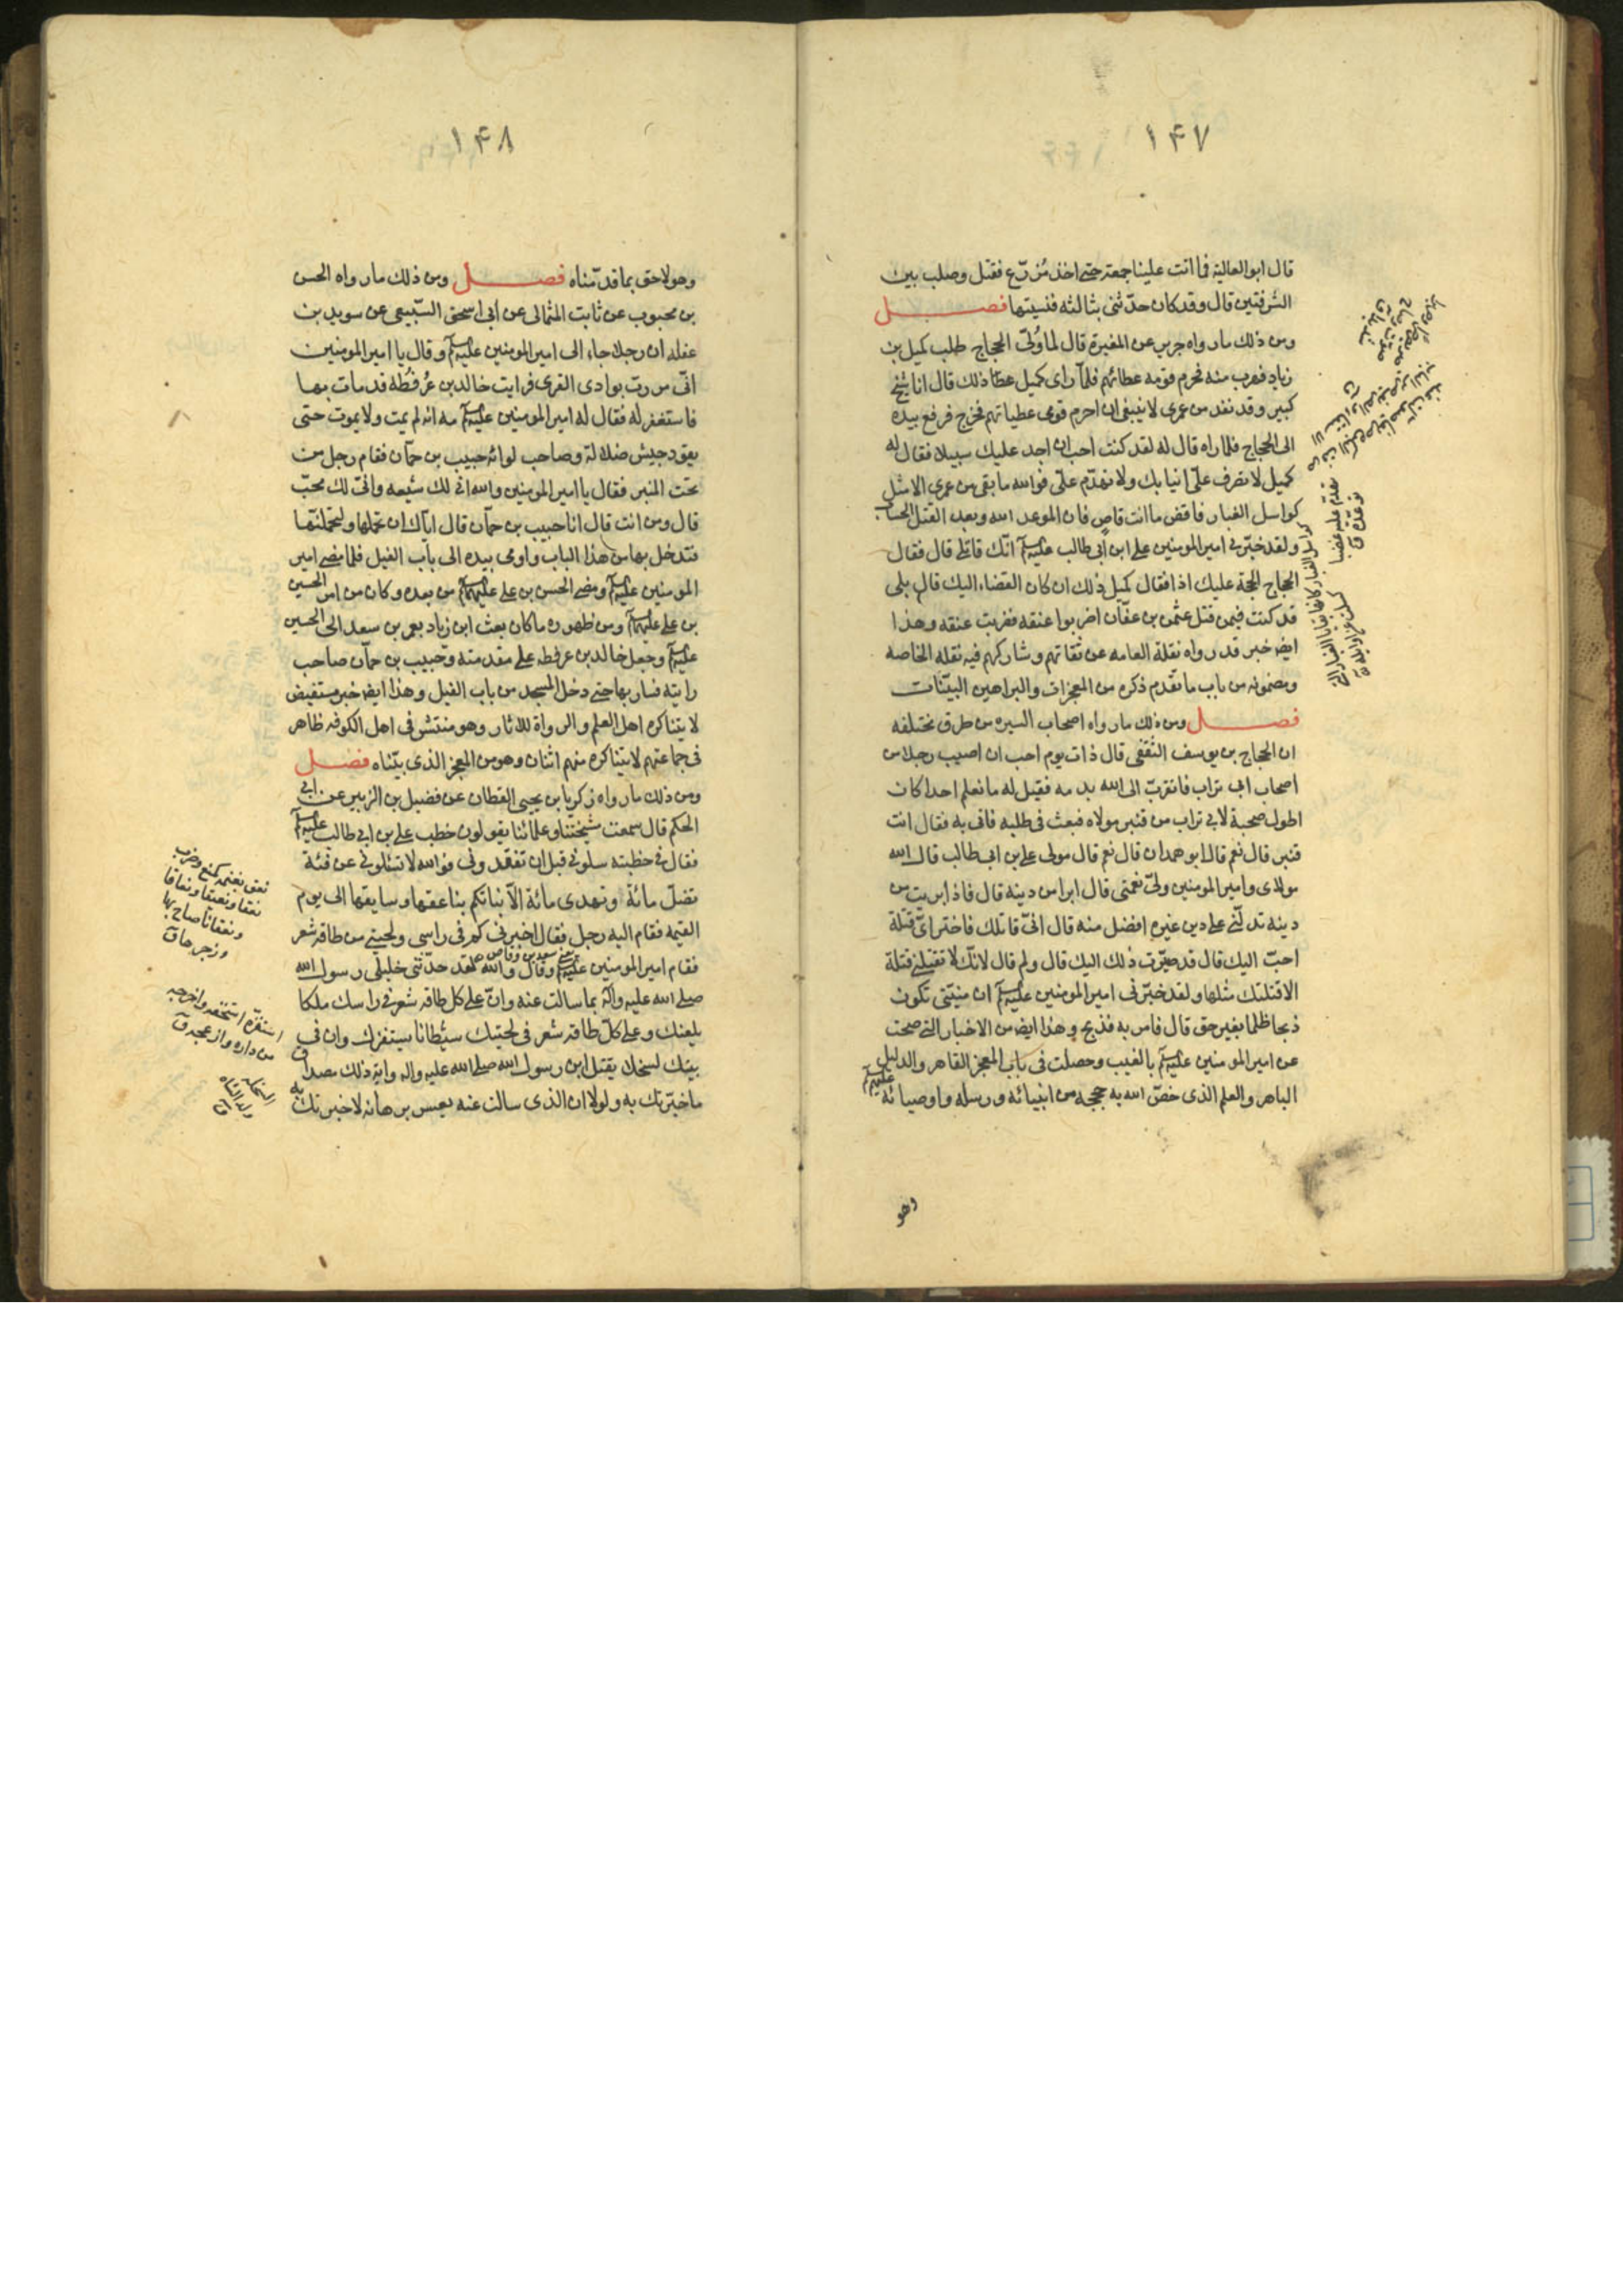 ١۴٧
قال ابو العالية فما اتت علينا جمعة حتى اخذ مُزَرّع فقتل وصلب بين
الشرفتين قال وقد كان حدّثنى بثالثة فنسيتها فصـل
ومن ذلك ما رواه جرير عن المغيرة قال لما وُلّى الحجاج طلب كميل بن
زياد فهرب منه فحرم قومه عطائهم فلمّا راى كميل عطا ذلك قال انا شيخ
كبير وقد نفد من عمرى لا ينبغى ان احرم قومى عطياتهم فخرج فرفع بيده
الى الحجاج فلما راه قال له لقد كنت احب ان اجد عليك سبيلا فقال له
كميل لا تصرف علىّ انيابك ولا تهدّم علىّ فوالله ما بقى من عمرى الا مثل
كواسل الغبار فاقض ما انت قاض فان الموعد الله وبعد القتل الحساب
ولقد خبّرنى امير المومنين على ابن ابى طالب عليه السلام انّك قاتلى قال فقال
الحجاج الحجة عليك اذا فقال كميل ذلك ان كان القضاء اليك قال بلى
قد كنت فيمن قتل عثمن بن عفّان اضربوا عنقه فضربت عنقه وهذا
ايض خبر قد رواه نقلة العامه عن ثقاتهم وشاركهم فيه نقله الخاصه
ومضمونه من باب ما تقدم ذكره من المعجزات والبراهين البيّنات
فصـل ومن ذلك ما رواه اصحاب السيره من طرق مختلفه
ان الحجاج بن يوسف الثقفى قال ذات يوم احب ان اصيب رجلا من
اصحاب ابى تراب فاتقرب الى الله بدمه فقيل له ما نعلم احدا كان
اطول صحبة لابى تراب من قنبر مولاه فبعث فى طلبه فاتى به فقال انت
قنبر قال نعم قال ابو همدان قال نعم قال مولى على بن ابى طالب قال الله
مولاى وامير المومنين ولىّ نعمتى قال ابرا من دينه قال فاذا برئت من
دينه تدلّنى على دين غيره افضل منه قال انّى قاتلك فاختر اىّ قتلة
احبّ اليك قال قد صيّرت ذلك اليك قال ولم قال لانّك لا تقتلنى قتلة
الا قتلتك مثلها ولقد خبّرنى امير المومنين عليه السلام ان منيّتى تكون
ذبحا ظلما بغير حق قال فامر به فذبح وهذا ايض من الاخبار التى صحت
عن امير المومنين عليه السلام بالغيب وحصلت فى باب المعجز القاهر والدليل
الباهر والعلم الذى خصّ الله به حججه من انبيائه ورسله واوصيائه عليهم السلام
وهو
١۴٨
وهو لاحق بما قدّمناه فصـل ومن ذلك ما رواه الحسن
بن محبوب عن ثابت الثمالى عن ابى اسحق السّبيعى عن سويد بن
غفله ان رجلا جاء الى امير المومنين عليه السلام وقال يا امير المومنين
انّى مررت بوادى القرى فرايت خالد بن عُرفُطه قد مات بها
فاستغفر له فقال له امير المومنين عليه السلام مه انه لم يمت ولا يموت حتى
يقود جيش ضلالة وصاحب لوائه حبيب بن حمّان فقام رجل من
تحت المنبر فقال يا امير المومنين والله انى لك شيعه وانّى لك محبّ
قال ومن انت قال انا حبيب بن حمّان قال ايّاك ان تحملها ولتحملنّها
فتدخل بها من هذا الباب واومى بيده الى باب الفيل فلما مضى امير
المومنين عليه السلام ومضى الحسن بن على عليهما السلام من بعده وكان من امر الحسين
بن على عليهما السلام ومن ظهوره ما كان بعث ابن زياد بعمر بن سعد الى الحسين
عليه السلام وجعل خالد بن عرفطه على مقدمته وحبيب بن حمّان صاحب
رايته فسار بها حتى دخل المسجد من باب الفيل وهذا ايض خبر مستفيض
لا يتناكره اهل العلم والرواة للاثار وهو منتشر فى اهل الكوفه ظاهر
فى جماعتهم لا يتناكره منهم اثنان وهو من المعجز الذى بيّناه فصـل
ومن ذلك ما رواه زكريا بن يحيى القطان عن فضيل بن الزبير عن ابى
الحكم قال سمعت مشيختنا وعلمائنا يقولون خطب على بن ابى طالب عليه السلام
فقال فى خطبته سلونى قبل ان تفقدونى فوالله لا تسئلونى عن فئة
تضلّ مائة وتهدى مائة الّا نبّاتكم بناعقها وسايقها الى يوم
القيمه فقام اليه رجل فقال اخبرنى كم فى راسى ولحيتى من طاقه شعر
يعنى سعد بن وقاص
فقام امير المومنين عليه السلام وقال والله لقد حدّثنى خليلى رسول الله
صلى الله عليه واله بما سالت عنه وانّ على كل طاقه شعر فى راسك ملكا
يلعنك وعلى كلّ طاقه شعر فى لحيتك شيطانا يستفزك وان فى
بيتك لسخلا يقتل ابن رسول الله صلى الله عليه واله واية ذلك مصداق
ما خبّرتك به ولولا ان الذى سالت عنه يعسر برهانه لاخبرتك به
نعق بغنمه كمنع وضرب
نعقا ونعيقا ونعاقا
ونعقانا صاح بها
وزجرها ق
استفزّه استخفه واخرجه
من داره وازعجه ق
السخلة
ولد الشاة
ق